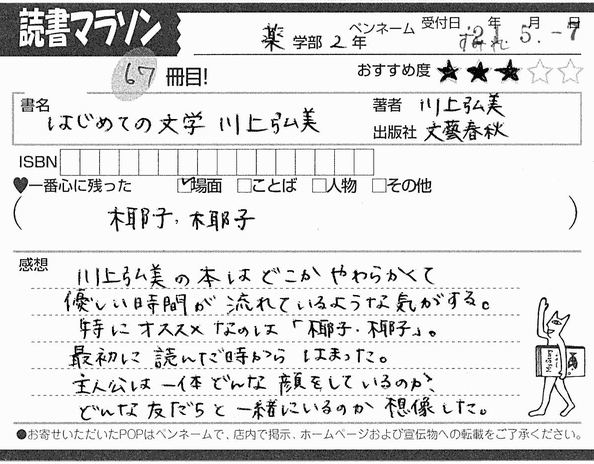 読書マラソン
薬 学部 2 年 ペンネーム すみれ 受付日 '21 年 5 月 -7 日
67 冊目! おすすめ度 ★★★☆☆
書名 はじめての文学 川上弘美
著者 川上弘美
出版社 文藝春秋
ISBN
♥一番心に残った ☑場面 □ことば □人物 □その他
( 椰子・椰子 )
感想
川上弘美の本はどこかやわらかくて
優しい時間が流れているような気がする。
特にオススメなのは「椰子・椰子」。
最初に読んだ時からはまった。
主人公は一体どんな顔をしているのか、
どんな友だちと一緒にいるのか想像した。
●お寄せいただいたPOPはペンネームで、店内で掲示、ホームページおよび宣伝物への転載をご了承ください。